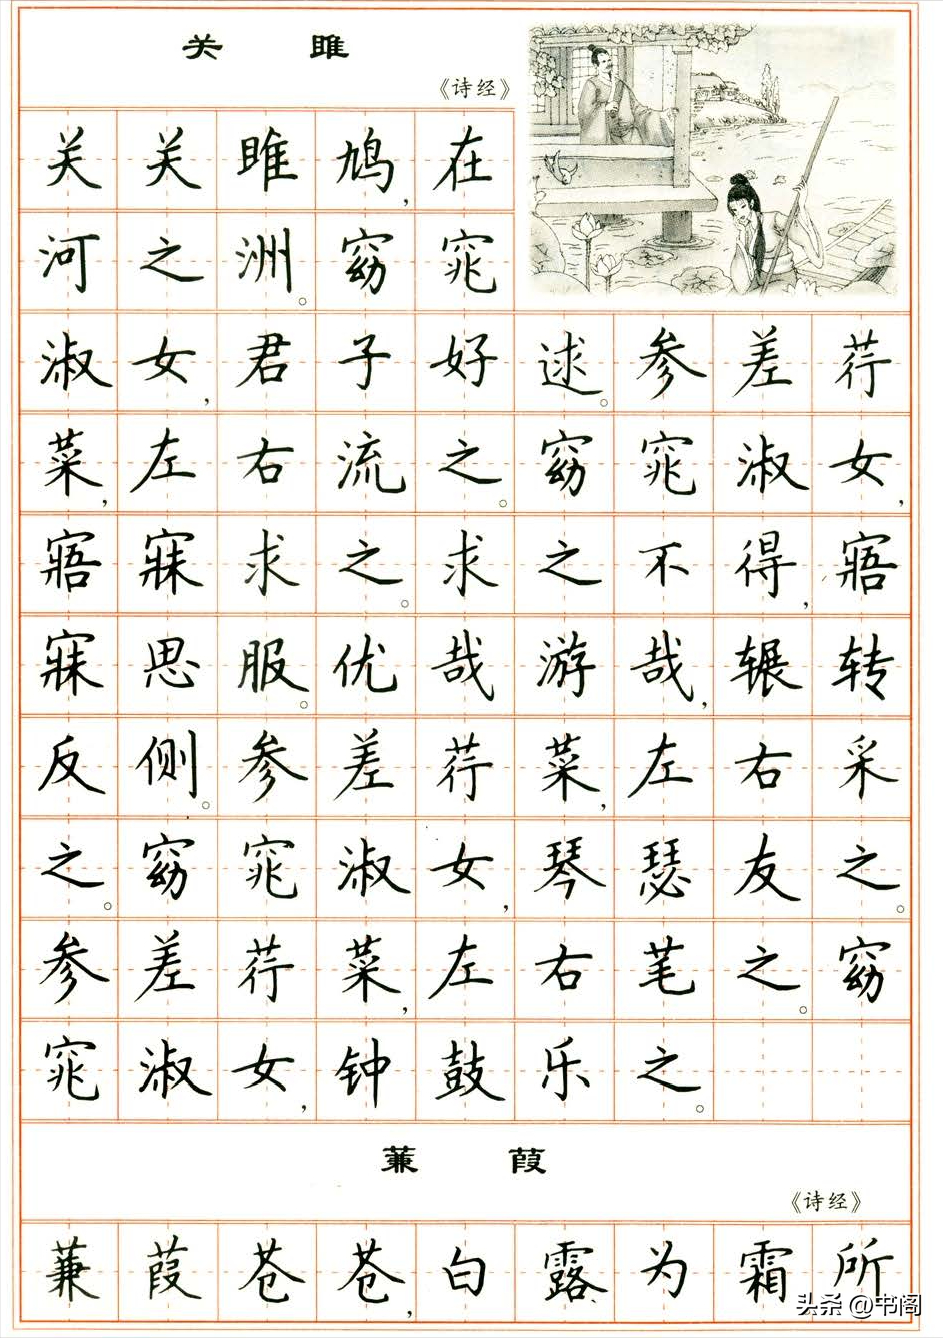 关 雎
《诗经》
关关雎鸠,在
河之洲。窈窕
淑女,君子好逑。参差荇
菜,左右流之。窈窕淑女,
寤寐求之。求之不得,寤
寐思服。优哉游哉,辗转
反侧。参差荇菜,左右采
之。窈窕淑女,琴瑟友之。
参差荇菜,左右芼之。窈
窕淑女,钟鼓乐之。
蒹 葭
《诗经》
蒹葭苍苍,白露为霜所
头条 @书阁